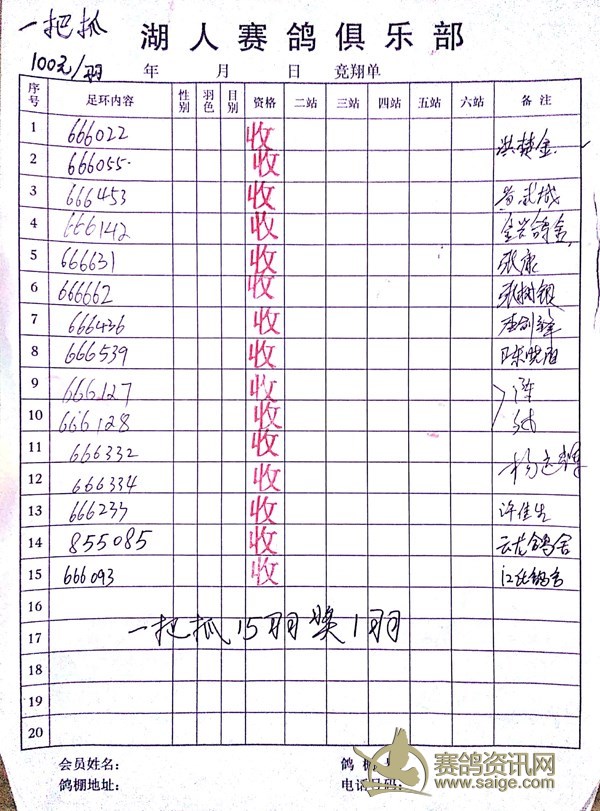 一把抓
湖人赛鸽俱乐部
100元/羽 年 月 日 竞翔单
序号 足环内容 性别 羽色 目别 资格 二站 三站 四站 五站 六站 备注
1 666022 收
2 666055 收
3 666453 收
4 666142 收
5 666631 收 张康
6 666662 收 张树银
7 666436 收
8 666539 收
9 666127 收
10 666128 收
11 666332 收
12 666334 收
13 666233 收 许佳生
14 855085 收 云龙鸽舍
15 666093 收
16
17 一把抓15羽奖1羽
18
19
20
会员姓名: 鸽棚
鸽棚地址: 电话号码:
赛鸽资讯网
www.saige.com